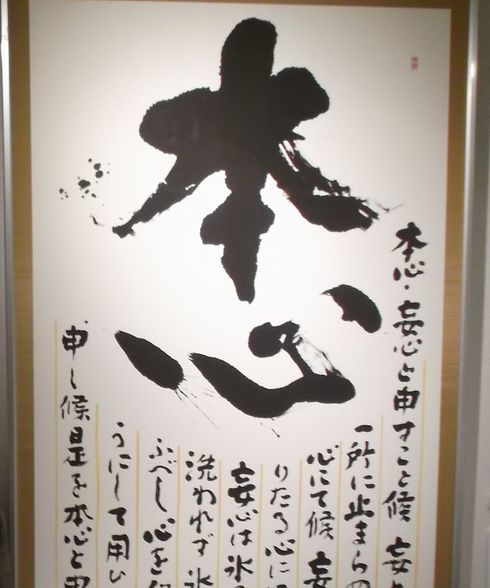 本心
本心・妄心と申すこと候 妄
一所に止まらぬ
心にて候 妄
りたる心に
妄心は氷
洗われず 氷
ふべし 心を
うにして用ひ
申し候是を本心と申